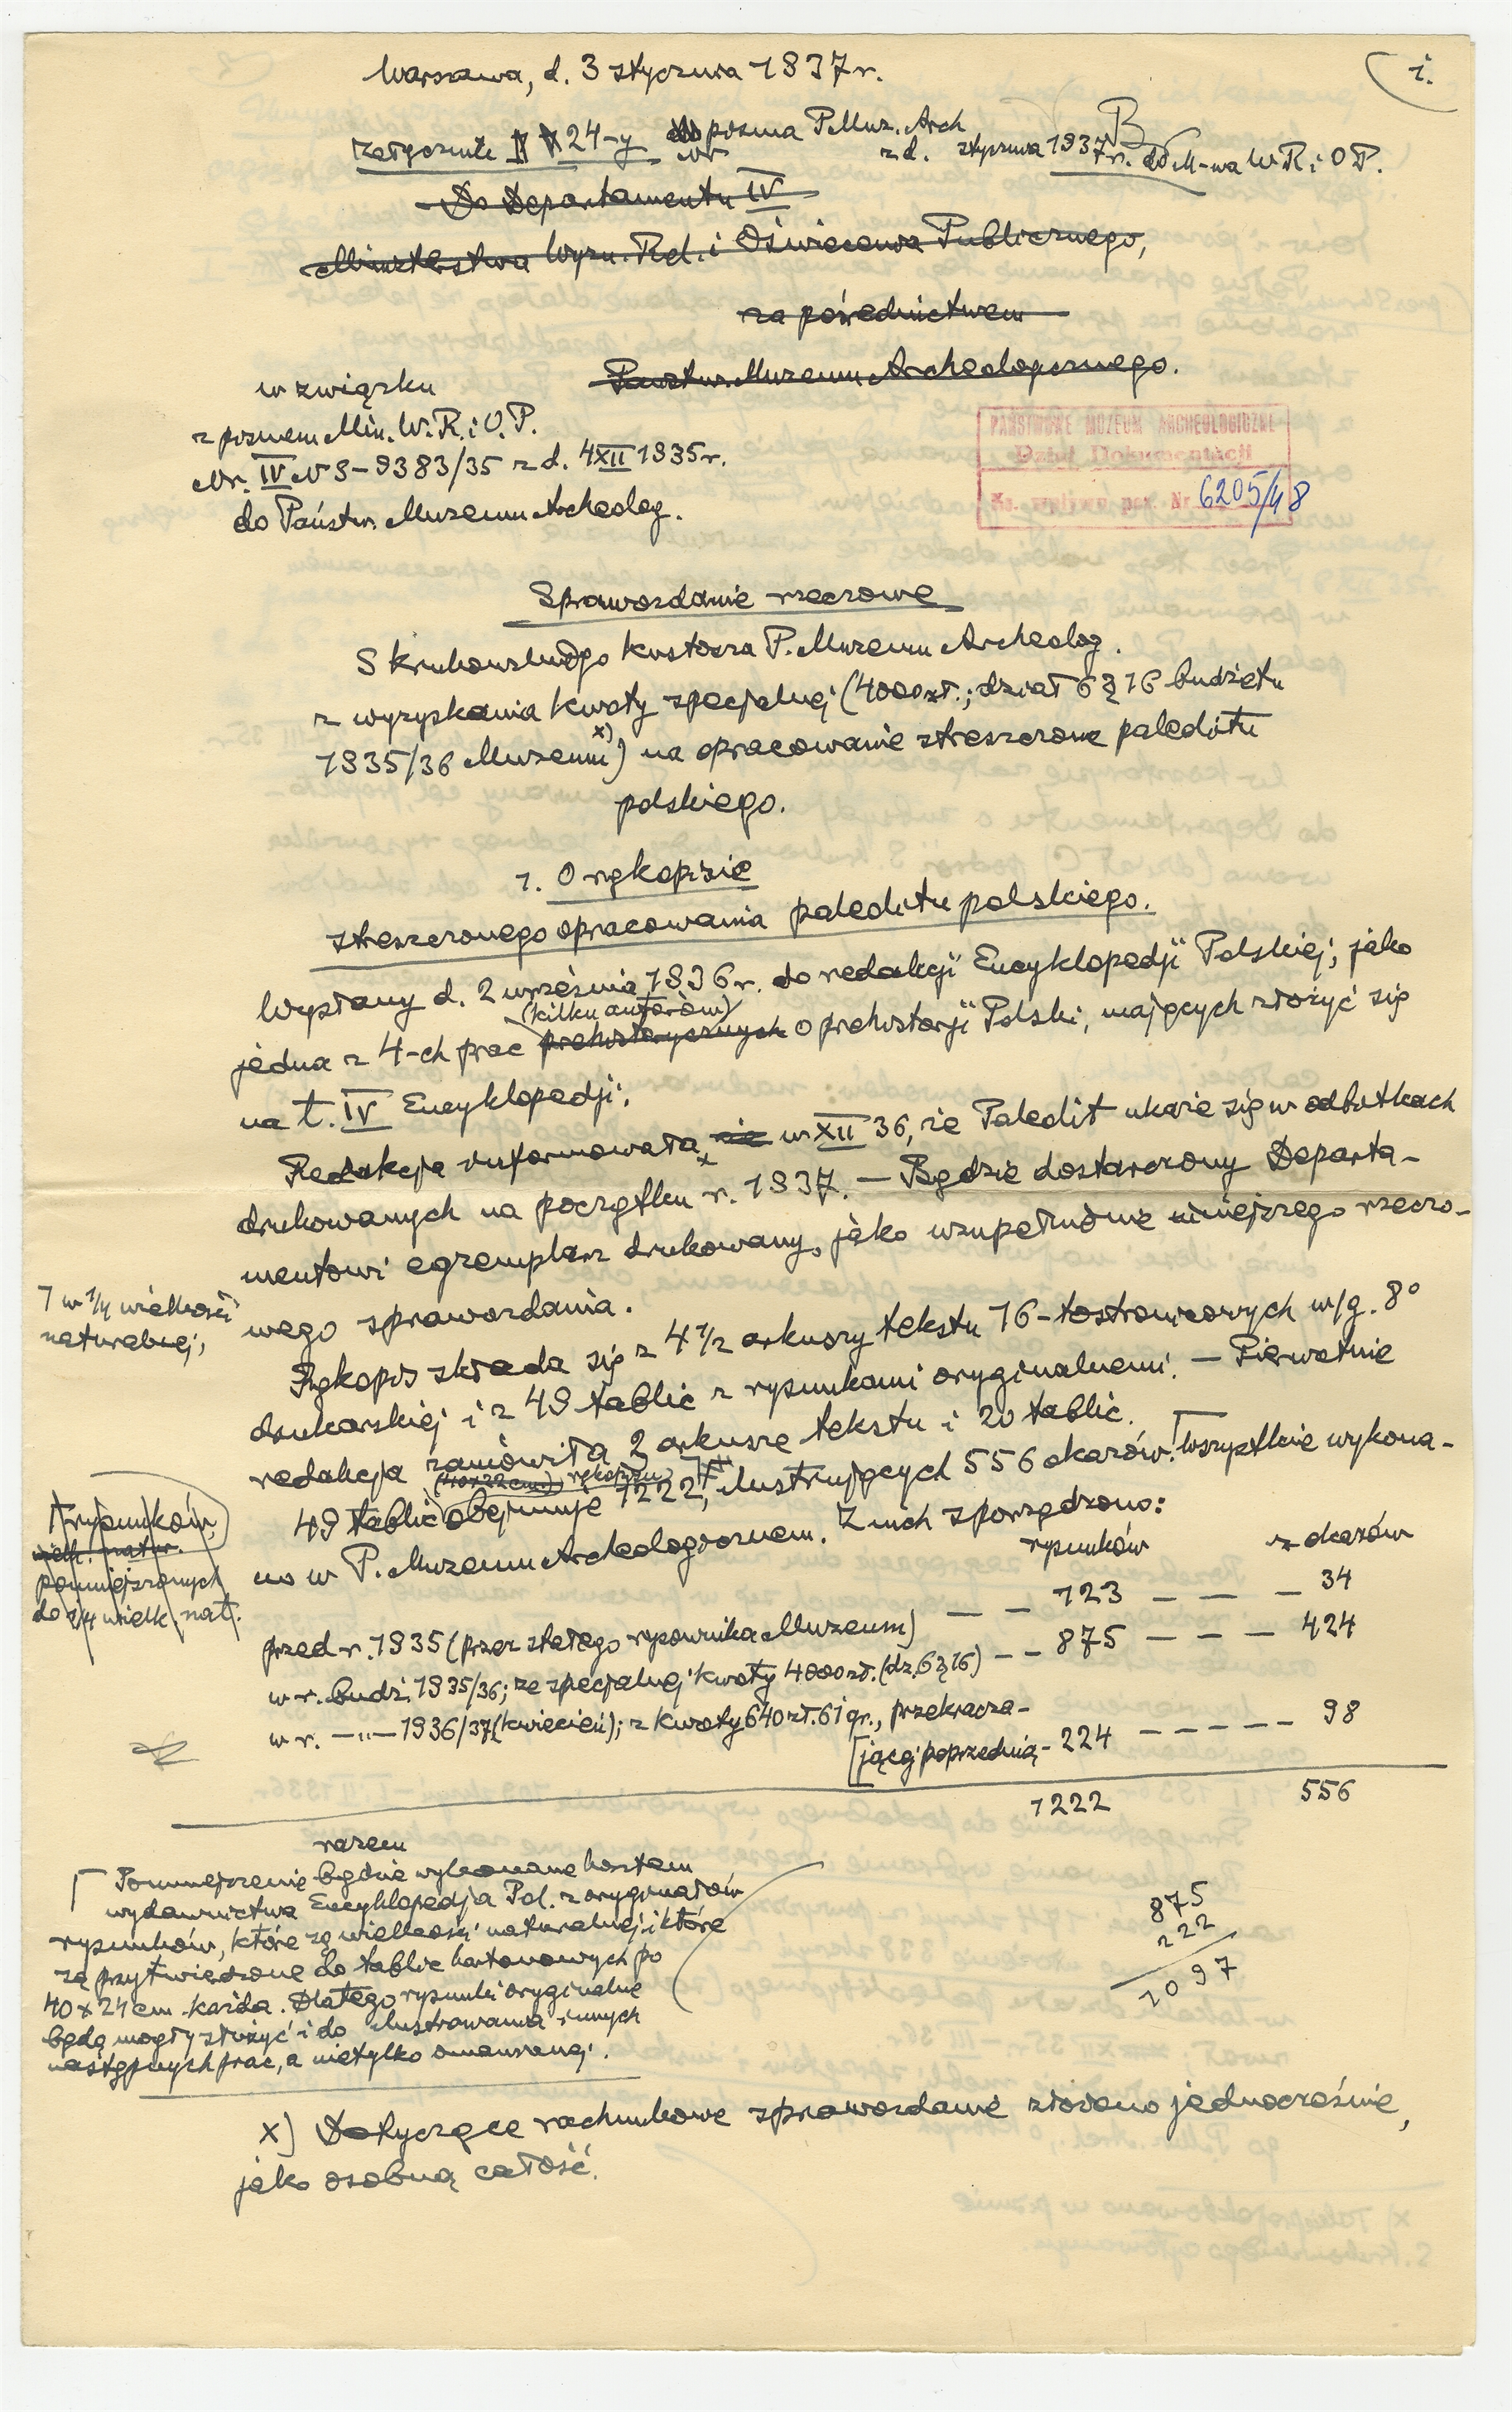 1.
Warszawa, d. 3 stycznia 1937 r.
Załącznik 24-y do pisma P. Muz. Arch
nr z d. stycznia 1937 r. do M-wa W R i O P.
B
Do Departamentu IV
Ministerstwa Wyzn. Rel. i Oświecenia Publicznego,
za pośrednictwem
Państw. Muzeum Archeologicznego.
w związku
z pismem Min. W. R. i O. P.
Nr. IV NS-9383/35 z d. 4 XII 1935 r.
do Państw. Muzeum Archeolog.
PAŃSTWOWE MUZEUM ARCHEOLOGICZNE
Dział Dokumentacji
Ks. wpływu poz. Nr 6205/48
Sprawozdanie rzeczowe
S Krukowskiego kustosza P. Muzeum Archeolog.
z wyzyskania kwoty specjalnej (4000 zł.; dział 6 § 16 budżetu
1935/36 Muzeum x)) na opracowanie streszczone paleolitu
polskiego.
1. O rękopisie
streszczonego opracowania paleolitu polskiego.
Wysłany d. 2 września 1936 r. do redakcji Encyklopedji Polskiej, jako
(kilku autorów)
jedna z 4-ch prac prehistorycznych o prehistorji Polski, mających złożyć się
na t. IV Encyklopedji.
Redakcja informowała, nie w XII 36, że Paleolit ukaże się w odbitkach
drukowanych na początku r. 1937. — Będzie dostarczony Departa-
mentowi egzemplarz drukowany, jako uzupełnienie niniejszego rzeczo-
wego sprawozdania.
⌈ w 1/4 wielkości
naturalnej,
Rękopis składa się z 4 1/2 arkuszy tekstu 16-tostronicowych w/g. 8°
drukarskiej i z 49 tablic z rysunkami oryginalnemi. — Pierwotnie
redakcja zamówiła 2 arkusze tekstu i 20 tablic.
(40x22 cm.) rękopisu
49 tablic obejmuje 1222, ilustrujących 556 okazów. ⌈Wszystkie wykona-
no w P. Muzeum Archeologicznem. Z nich sporządzono:
rysunków
wielk. natur.
pomniejszonych
do 1/4 wielk. nat.
rysunków z okazów
przed r. 1935 (przez stałego rysownika Muzeum) — — 123 — — — 34
w r. budż. 1935/36; ze specjalnej kwoty 4000 zł. (dz. 6 § 16) — — 875 — — — 424
w r. —"— 1936/37 (kwiecień); z kwoty 640 zł. 61 gr., przekracza-
[jącej poprzednią - 224 — — — — — 98
razem 1222 556
⌈ Pomniejszenie będzie wykonane kosztem
wydawnictwa Encyklopedja Pol. z oryginałów
rysunków, które są wielkości naturalnej i które
są przytwierdzone do tablic kartonowych po
40 x 24 cm. każda. Dlatego rysunki oryginalne
będą mogły służyć i do ilustrowania innych
następnych prac, a nietylko omawianej.
875
222
1097
x) Dotyczące rachunkowe sprawozdanie złożono jednocześnie,
jako osobną całość.